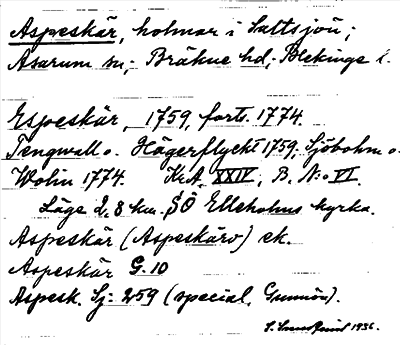 Aspeskär, holmar i Saltsjön;
Asarum sn; Bräkne hd; Blekinge l.
Espeskär, 1759, forts. 1774.
Tengwall o. Hägerflycht 1759, Sjöbohm o.
Wolin 1774. KrA, XXIV, B, No VI.
Läge 2,8 km. SÖ Elleholms kyrka.
Aspeskär (Aspeskärv) ek.
Aspeskär G. 10
Aspesk. Sj: 259 (special, Gunnön).
1936.